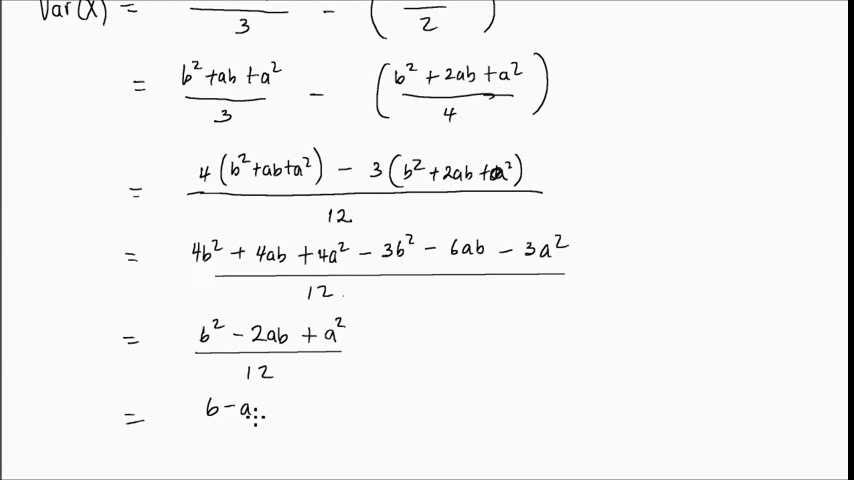 Var(X) = /3 - ( /2 )
= (b² + ab + a²)/3 - ((b² + 2ab + a²)/4)
= (4(b² + ab + a²) - 3(b² + 2ab + a²))/12
= (4b² + 4ab + 4a² - 3b² - 6ab - 3a²)/12
= (b² - 2ab + a²)/12
= b - a